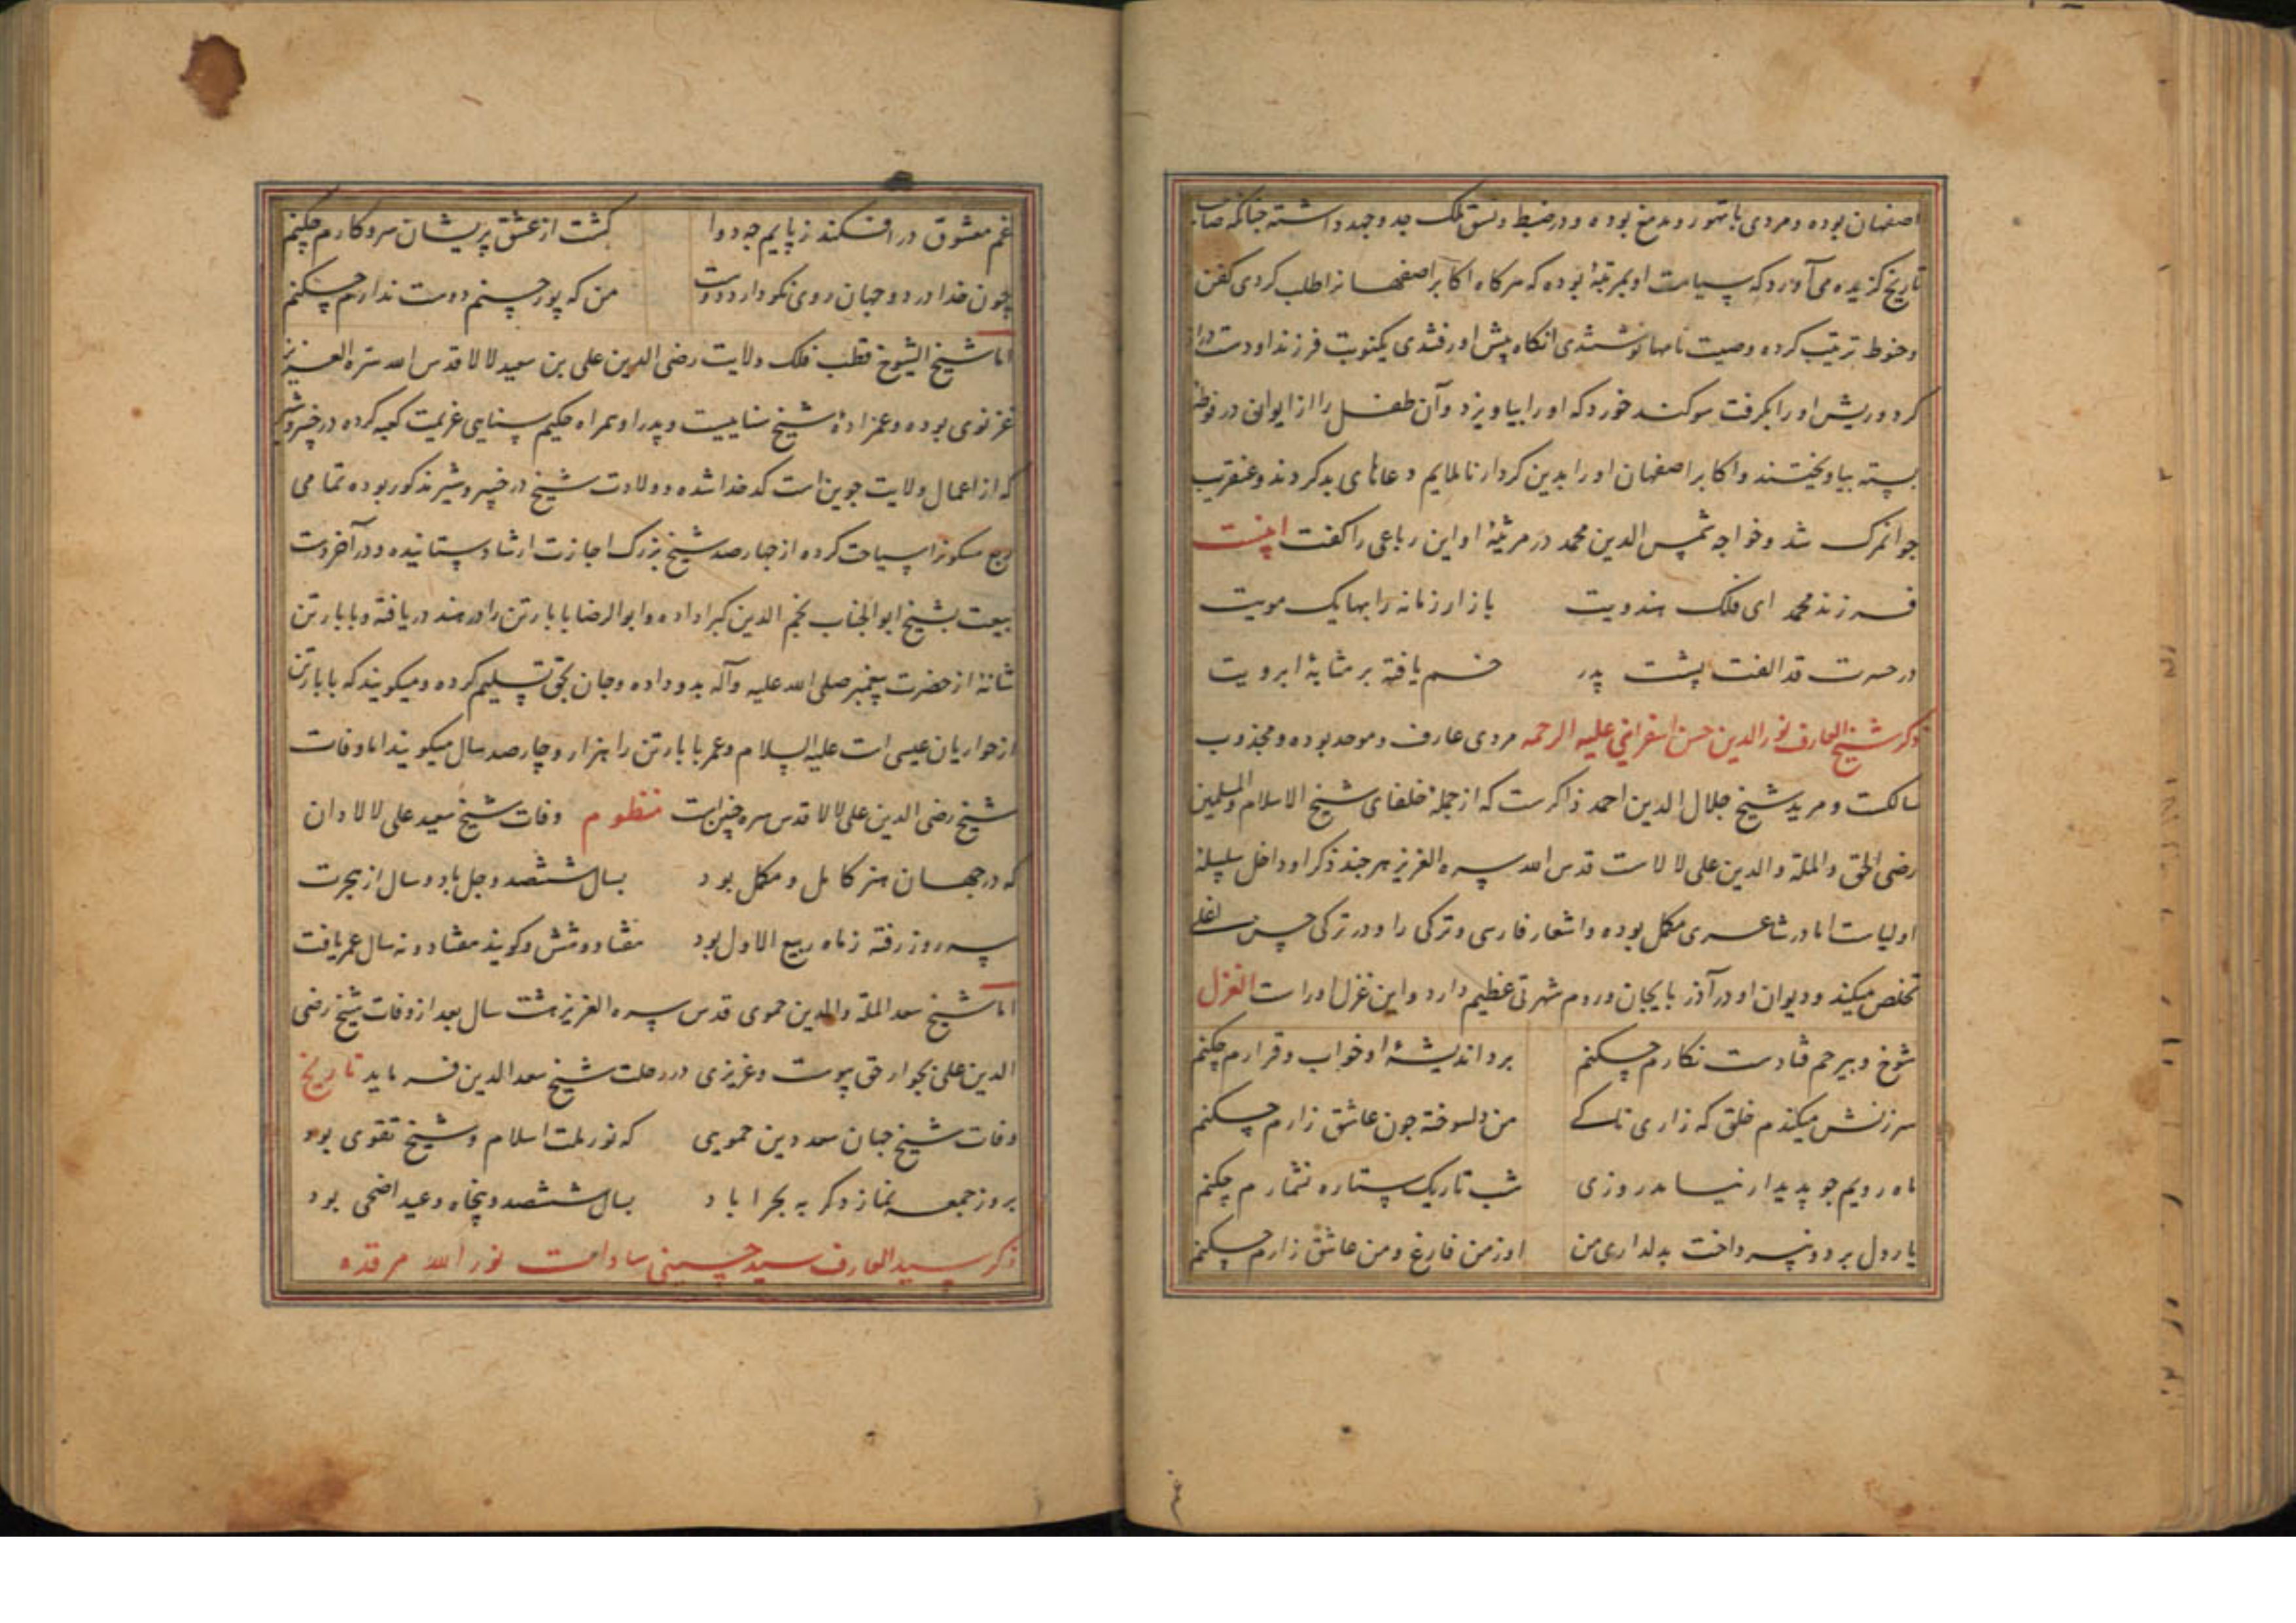 اصفهان بوده و مردی با تهور و مدمغ بوده و در ضبط و نسق ملک جد و جهد داشته چنانکه صاحب
تاریخ کزیده می آورد که سیاست او بمرتبهٔ بوده که هرکاه اکابر اصفهانرا طلب کردی کفن
و حنوط ترتیب کرده وصیت نامها نوشتندی انکاه پیش او رفتندی یکنوبت فرزند او دست دراز
کرد و ریش او را بکرفت سوکند خورد که او را بیاویزد و آن طفل را از ایوانی در فوطهٔ
بسته بیاویختند و اکابر اصفهان او را بدین کردار ناملایم دعاهای بد کردند و عنقریب
جوانمرک شد و خواجه شمس الدین محمد در مرثیهٔ او این رباعی را کفت اینست
فرزند محمد ای فلک هندویت بازار زمانه را بها یک مویت
در حسرت قد الفت پشت پدر خم یافته بر مثابهٔ ابرویت
ذکر شیخ العارف نورالدین حسن اسفراینی علیه الرحمه مردی عارف و موحد بوده و مجذوب
سالکت و مرید شیخ جلال الدین احمد ذاکرست که از جملهٔ خلفای شیخ الاسلام والمسلمین
رضی الحق والملة والدین علی لالاست قدس الله سره العزیز هر چند ذکر او داخل سلسلهٔ
اولیاست اما در شاعری مکمل بوده و اشعار فارسی و ترکی را و در ترکی حسن اغلی
تخلص میکند و دیوان او در آذربایجان و روم شهرتی عظیم دارد و این غزل اوراست الغزل
شوخ و بیرحم فتادست نکارم چکنم برد اندیشهٔ او خواب و قرارم چکنم
سرزنش میکندم خلق که زاری تا کے من دلسوخته چون عاشق زارم چکنم
ماه رویم چو پدیدار نیامد روزی شب تاریک ستاره نشمارم چکنم
یار دل برد و نپرداخت بدلداری من او ز من فارغ و من عاشق زارم چکنم
غم
غم معشوق در افکند ز پایم چه دوا کشت از عشق پریشان سر و کارم چکنم
چون خدا در دو جهان روی نکو دارد دوست من که پور حسنم دوست ندارم چکنم
اما شیخ الشیوخ قطب فلک ولایت رضی الدین علی بن سعید لالا قدس الله سره العزیز
غزنوی بوده و عمزادهٔ شیخ سناییست و پدر او همراه حکیم سنایی عزیمت کعبه کرده در خسرو شیر
که از اعمال ولایت جوین است کدخدا شده و ولادت شیخ در خسرو شیر مذکور بوده تمامی
ربع مسکونرا سیاحت کرده از چهارصد شیخ بزرک اجازت ارشاد ستانیده و در آخر دست
بیعت بشیخ ابوالجناب نجم الدین کبرا داده و ابوالرضا بابا رتن را در هند دریافته و بابا رتن
شانهٔ از حضرت پیغمبر صلی الله علیه وآله بدو داده و جان بحق تسلیم کرده و میکویند که بابا رتن
از حواریان عیسی است علیه السلام و عمر بابا رتن را هزار و چارصد سال میکویند اما وفات
شیخ رضی الدین علی لالا قدس سره چنین است منظوم وفات شیخ سعید علی لالا دان
که در جهان هنر کامل و مکمل بود بسال ششصد و چل باد و سال از هجرت
سه روز رفته ز ماه ربیع الاول بود هفتاد و شش و کویند هفتاد و نه سال عمر یافت
اما شیخ سعد الملة والدین حموی قدس سره العزیز هشت سال بعد از وفات شیخ رضی
الدین علی بجوار حق پیوست و عزیزی در رحلت شیخ سعد الدین فرماید تاریخ
وفات شیخ جهان سعد دین حمویی که نور ملت اسلام و شیخ تقوی بود
بروز جمعه نماز دکر به بحراباد بسال ششصد و پنجاه و عید اضحی بود
ذکر سید العارف سید حسینی سادات نور الله مرقده